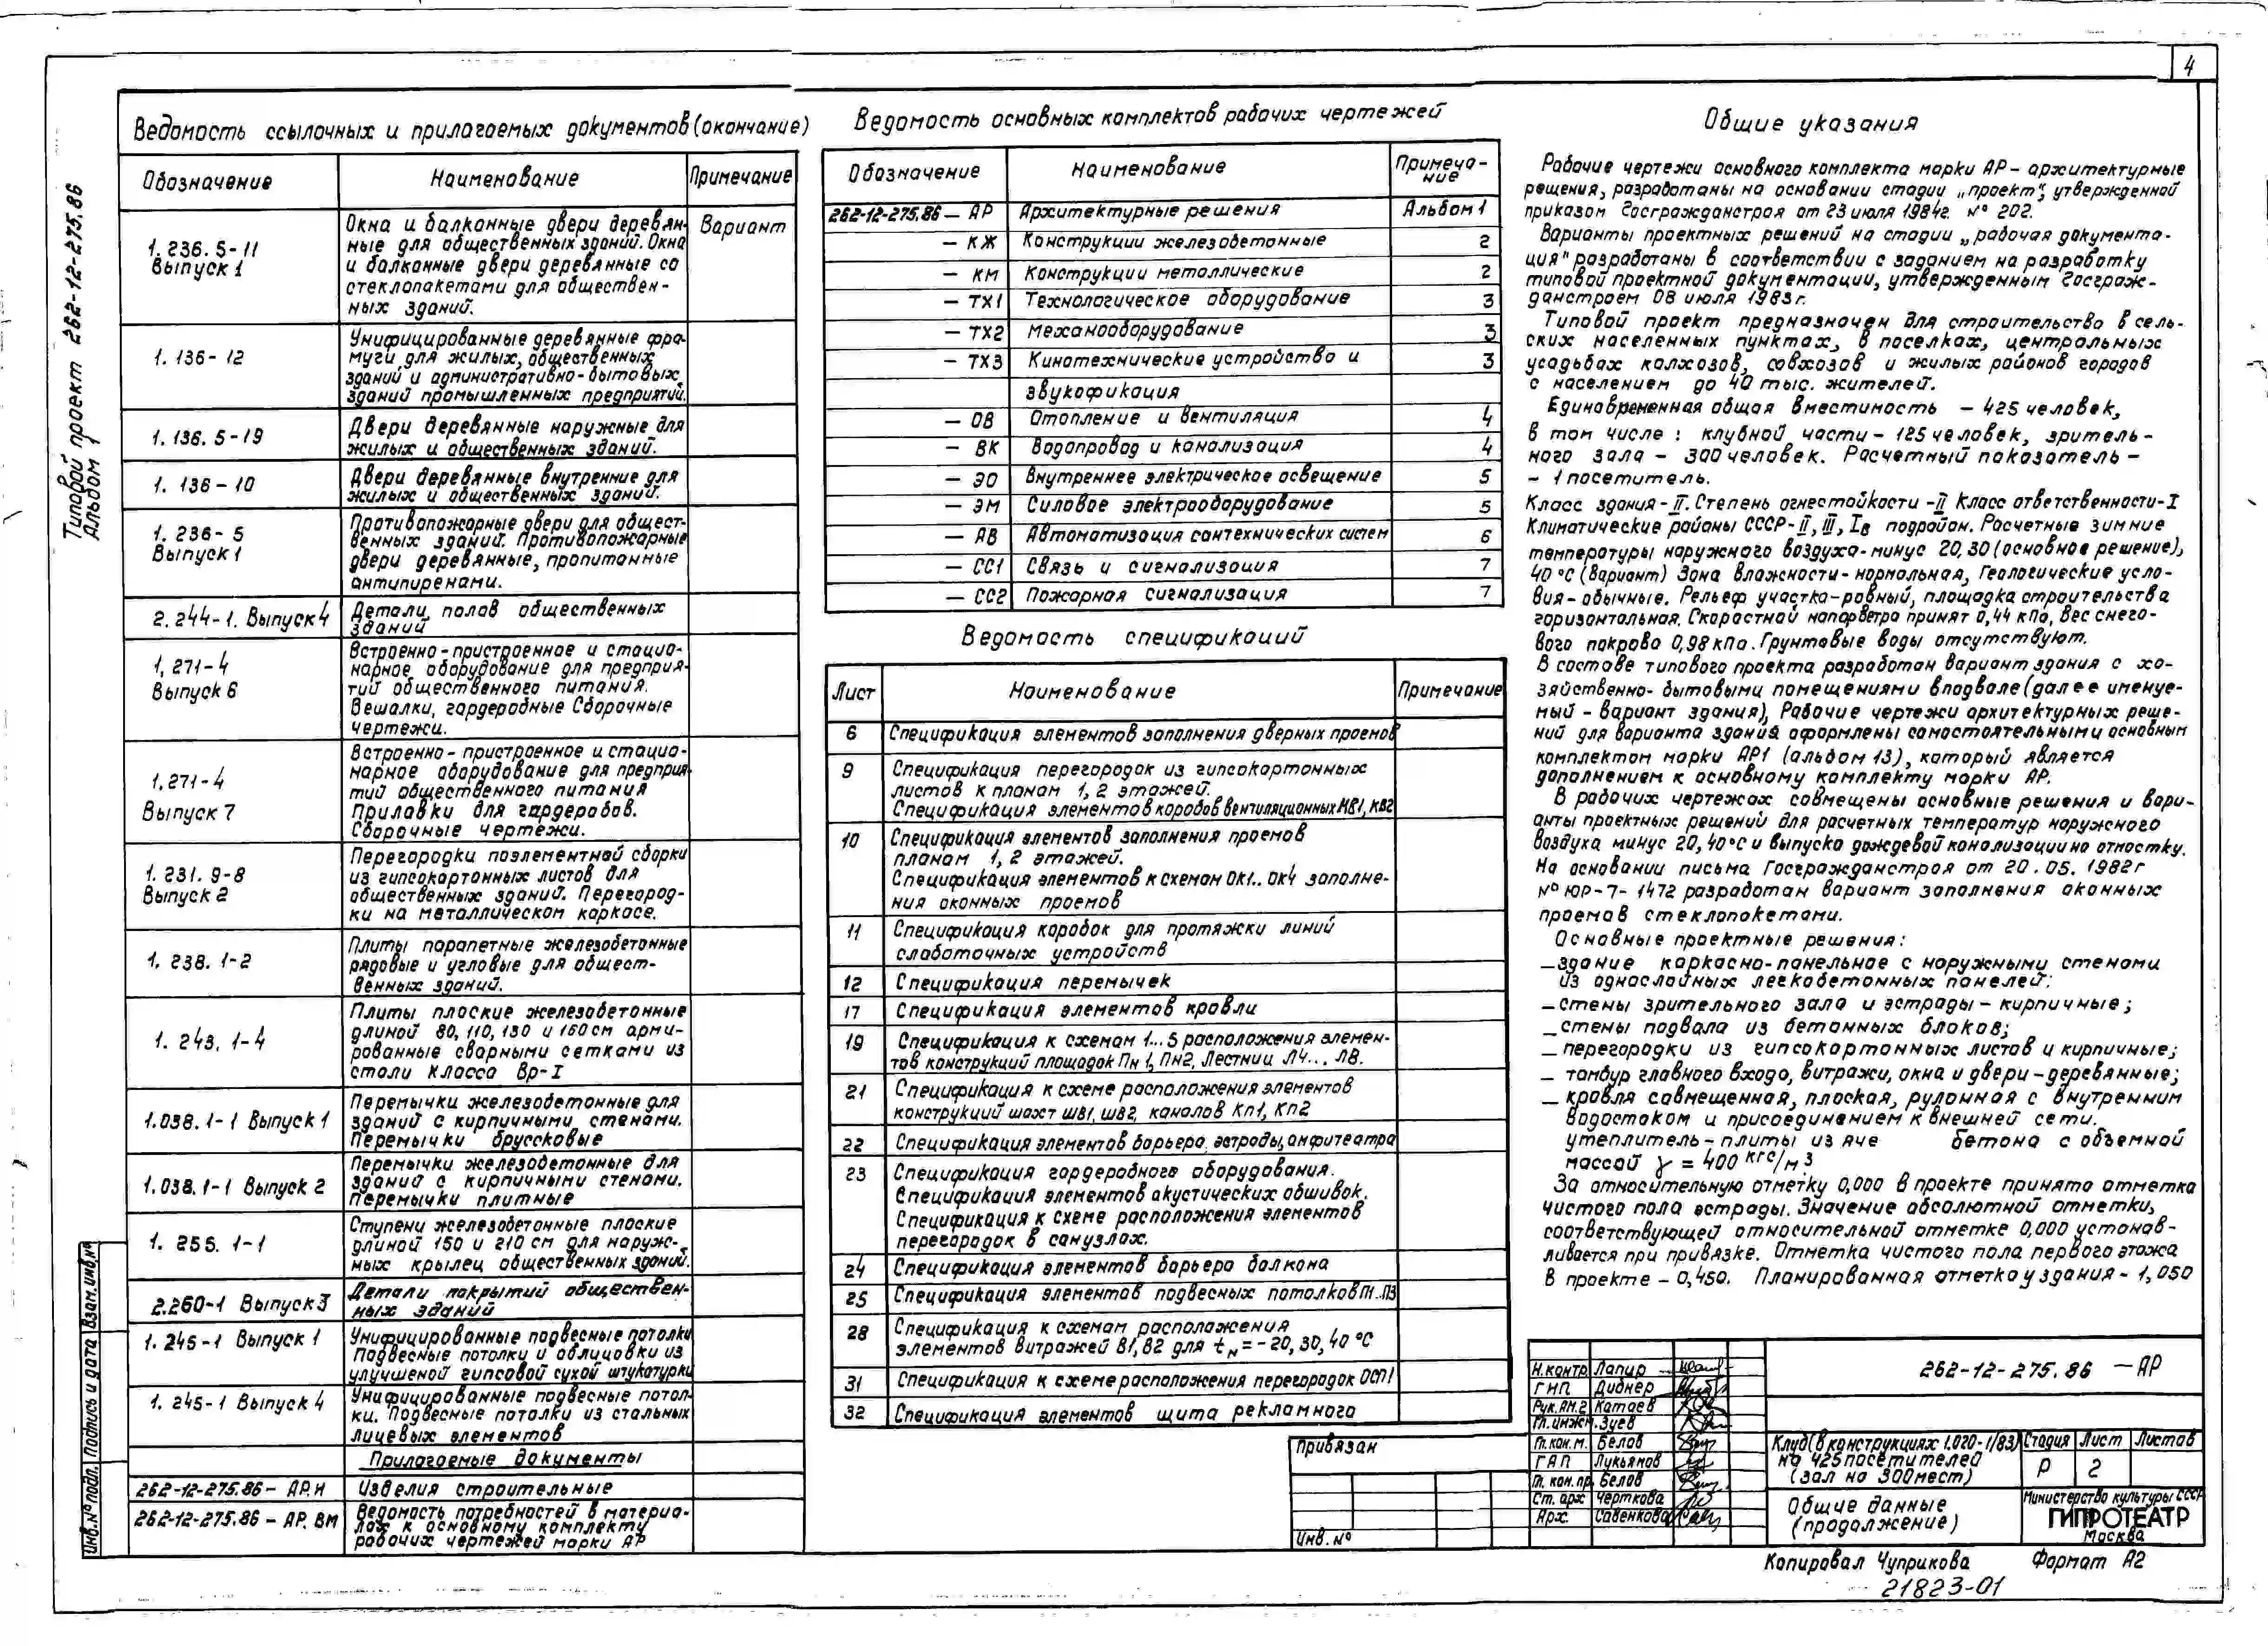 4
Типовой проект 262-12-275.86
Альбом 1
Ведомость ссылочных и прилагаемых документов (окончание)
Обозначение
Наименование
Примечание
1. 236. 5-11
Выпуск 1
Окна и балконные двери деревян-
ные для общественных зданий. Окна
и балконные двери деревянные со
стеклопакетами для обществен-
ных зданий.
Вариант
1. 136-12
Унифицированные деревянные фра-
муги для жилых, общественных
зданий и административно-бытовых
зданий промышленных предприятий.
1. 136. 5-19
Двери деревянные наружные для
жилых и общественных зданий.
1. 136-10
Двери деревянные внутренние для
жилых и общественных зданий.
1. 236-5
Выпуск 1
Противопожарные двери для общест-
венных зданий. Противопожарные
двери деревянные, пропитанные
антипиренами.
2. 244-1. Выпуск 4
Детали полов общественных
зданий
1, 271-4
Выпуск 6
Встроенно-пристроенное и стацио-
нарное оборудование для предприя-
тий общественного питания.
Вешалки, гардеробные Сборочные
чертежи.
1. 271-4
Выпуск 7
Встроенно-пристроенное и стацио-
нарное оборудование для предприя-
тий общественного питания
Прилавки для гардеробов.
Сборочные чертежи.
1. 231. 9-8
Выпуск 2
Перегородки поэлементной сборки
из гипсокартонных листов для
общественных зданий. Перегород-
ки на металлическом каркасе.
1. 238. 1-2
Плиты парапетные железобетонные
рядовые и угловые для общест-
венных зданий.
1. 243. 1-4
Плиты плоские железобетонные
длиной 80, 110, 130 и 160 см арми-
рованные сварными сетками из
стали класса Вр-I
1.038. 1-1 Выпуск 1
Перемычки железобетонные для
зданий с кирпичными стенами.
Перемычки брусковые
1.038. 1-1 Выпуск 2
Перемычки железобетонные для
зданий с кирпичными стенами.
Перемычки плитные
1. 255. 1-1
Ступени железобетонные плоские
длиной 150 и 210 см для наруж-
ных крылец общественных зданий.
2.260-1 Выпуск 3
Детали покрытий обществен-
ных зданий
1. 245-1 Выпуск 1
Унифицированные подвесные потолки
Подвесные потолки и облицовки из
улучшеной гипсовой сухой штукатурки
1. 245-1 Выпуск 4
Унифицированные подвесные потол-
ки. Подвесные потолки из стальных
лицевых элементов
Прилагаемые документы
262-12-275.86 - АР.И
Изделия строительные
262-12-275.86 - АР. ВМ
Ведомость потребностей в материа-
лах к основному комплекту
рабочих чертежей марки АР
Ведомость основных комплектов рабочих чертежей
Обозначение
Наименование
Примеча-
ние
262-12-275.86 - АР Архитектурные решения Альбом 1
- КЖ Конструкции железобетонные 2
- КМ Конструкции металлические 2
- ТХ1 Технологическое оборудование 3
- ТХ2 Механооборудование 3
- ТХ3 Кинотехнические устройства и 3
звукофикация
- ОВ Отопление и вентиляция 4
- ВК Водопровод и канализация 4
- ЭО Внутреннее электрическое освещение 5
- ЭМ Силовое электрооборудование 5
- АВ Автоматизация сантехнических систем 6
- СС1 Связь и сигнализация 7
- СС2 Пожарная сигнализация 7
Ведомость спецификаций
Лист
Наименование
Примечание
6 Спецификация элементов заполнения дверных проемов
9 Спецификация перегородок из гипсокартонных
листов к планам 1, 2 этажей.
Спецификация элементов коробов вентиляционных КВ1, КВ2
10 Спецификация элементов заполнения проемов
планам 1, 2 этажей.
Спецификация элементов к схемам ОК1.. ОК4 заполне-
ния оконных проемов
11 Спецификация коробок для протяжки линий
слаботочных устройств
12 Спецификация перемычек
17 Спецификация элементов кровли
19 Спецификация к схемам 1...5 расположения элемен-
тов конструкций площадок Пн 1, Пн2, Лестниц Л4... Л8.
21 Спецификация к схеме расположения элементов
конструкций шахт ШВ1, ШВ2, каналов Кп1, Кп2
22 Спецификация элементов барьера эстрады, амфитеатра
23 Спецификация гардеробного оборудования.
Спецификация элементов акустических обшивок.
Спецификация к схеме расположения элементов
перегородок в санузлах.
24 Спецификация элементов барьера балкона
25 Спецификация элементов подвесных потолков П1..П3
28 Спецификация к схемам расположения
элементов витражей В1, В2 для tн = -20, 30, 40 °С
31 Спецификация к схеме расположения перегородок ОСП1
32 Спецификация элементов щита рекламного
Общие указания
Рабочие чертежи основного комплекта марки АР - архитектурные
решения, разработаны на основании стадии „проект", утвержденной
приказом Госгражданстроя от 23 июля 1984г. № 202.
Варианты проектных решений на стадии „рабочая документа-
ция" разработаны в соответствии с заданием на разработку
типовой проектной документации, утвержденным Госграж-
данстроем 08 июля 1983г.
Типовой проект предназначен для строительства в сель-
ских населенных пунктах, в поселках, центральных
усадьбах колхозов, совхозов и жилых районов городов
с населением до 40 тыс. жителей.
Единовременная общая вместимость - 425 человек,
в том числе: клубной части - 125 человек, зритель-
ного зала - 300 человек. Расчетный показатель -
- 1 посетитель.
Класс здания - II. Степень огнестойкости - II Класс ответственности - I
Климатические районы СССР - II, III, Iв подрайон. Расчетные зимние
температуры наружного воздуха - минус 20, 30 (основное решение),
40 °С (вариант) Зона влажности - нормальная, Геологические усло-
вия - обычные. Рельеф участка - ровный, площадка строительства
горизонтальная. Скоростной напор ветра принят 0,44 кПа, вес снего-
вого покрова 0,98 кПа. Грунтовые воды отсутствуют.
В составе типового проекта разработан вариант здания с хо-
зяйственно-бытовыми помещениями в подвале (далее именуе-
мый - вариант здания), Рабочие чертежи архитектурных реше-
ний для варианта здания оформлены самостоятельным основным
комплектом марки АР1 (альбом 13), который является
дополнением к основному комплекту марки АР.
В рабочих чертежах совмещены основные решения и вари-
анты проектных решений для расчетных температур наружного
воздуха минус 20, 40 °С и выпуска дождевой канализации на отмостку.
На основании письма Госгражданстроя от 20. 05. 1982г
№ ЮР-7-1472 разработан вариант заполнения оконных
проемов стеклопакетами.
Основные проектные решения:
— здание каркасно-панельное с наружными стенами
из однослойных легкобетонных панелей;
— стены зрительного зала и эстрады - кирпичные;
— стены подвала из бетонных блоков;
— перегородки из гипсокартонных листов и кирпичные;
— тамбур главного входа, витражи, окна и двери - деревянные;
— кровля совмещенная, плоская, рулонная с внутренним
водостоком и присоединением к внешней сети.
утеплитель - плиты из яче бетона с объемной
массой γ = 400 кгс/м3
За относительную отметку 0,000 в проекте принята отметка
чистого пола эстрады. Значение абсолютной отметки,
соответствующей относительной отметке 0,000 устанав-
ливается при привязке. Отметка чистого пола первого этажа
в проекте - 0,450. Планированная отметка у здания - 1,050
Привязан
Инв. №
Н.контр Лапир
ГИП Диднер
Рук.АМ.2 Катаев
Гл.инж.м. Зуев
Гл. кон. м. Белов
ГАП Лукьянов
Гл. кон. пр. Белов
Ст. арх Черткова
Арх. Савенкова
262-12-275.86 - АР
Клуб (в конструкциях 1.020-1/83)
на 425 посетителей
(зал на 300 мест)
Стадия Лист Листов
Р 2
Общие данные
(продолжение)
Министерство культуры СССР
ГИПРОТЕАТР
Москва
Копировал Чуприкова Формат А2
21823-01
Инв.№ подл. Подпись и дата Взам.инв.№